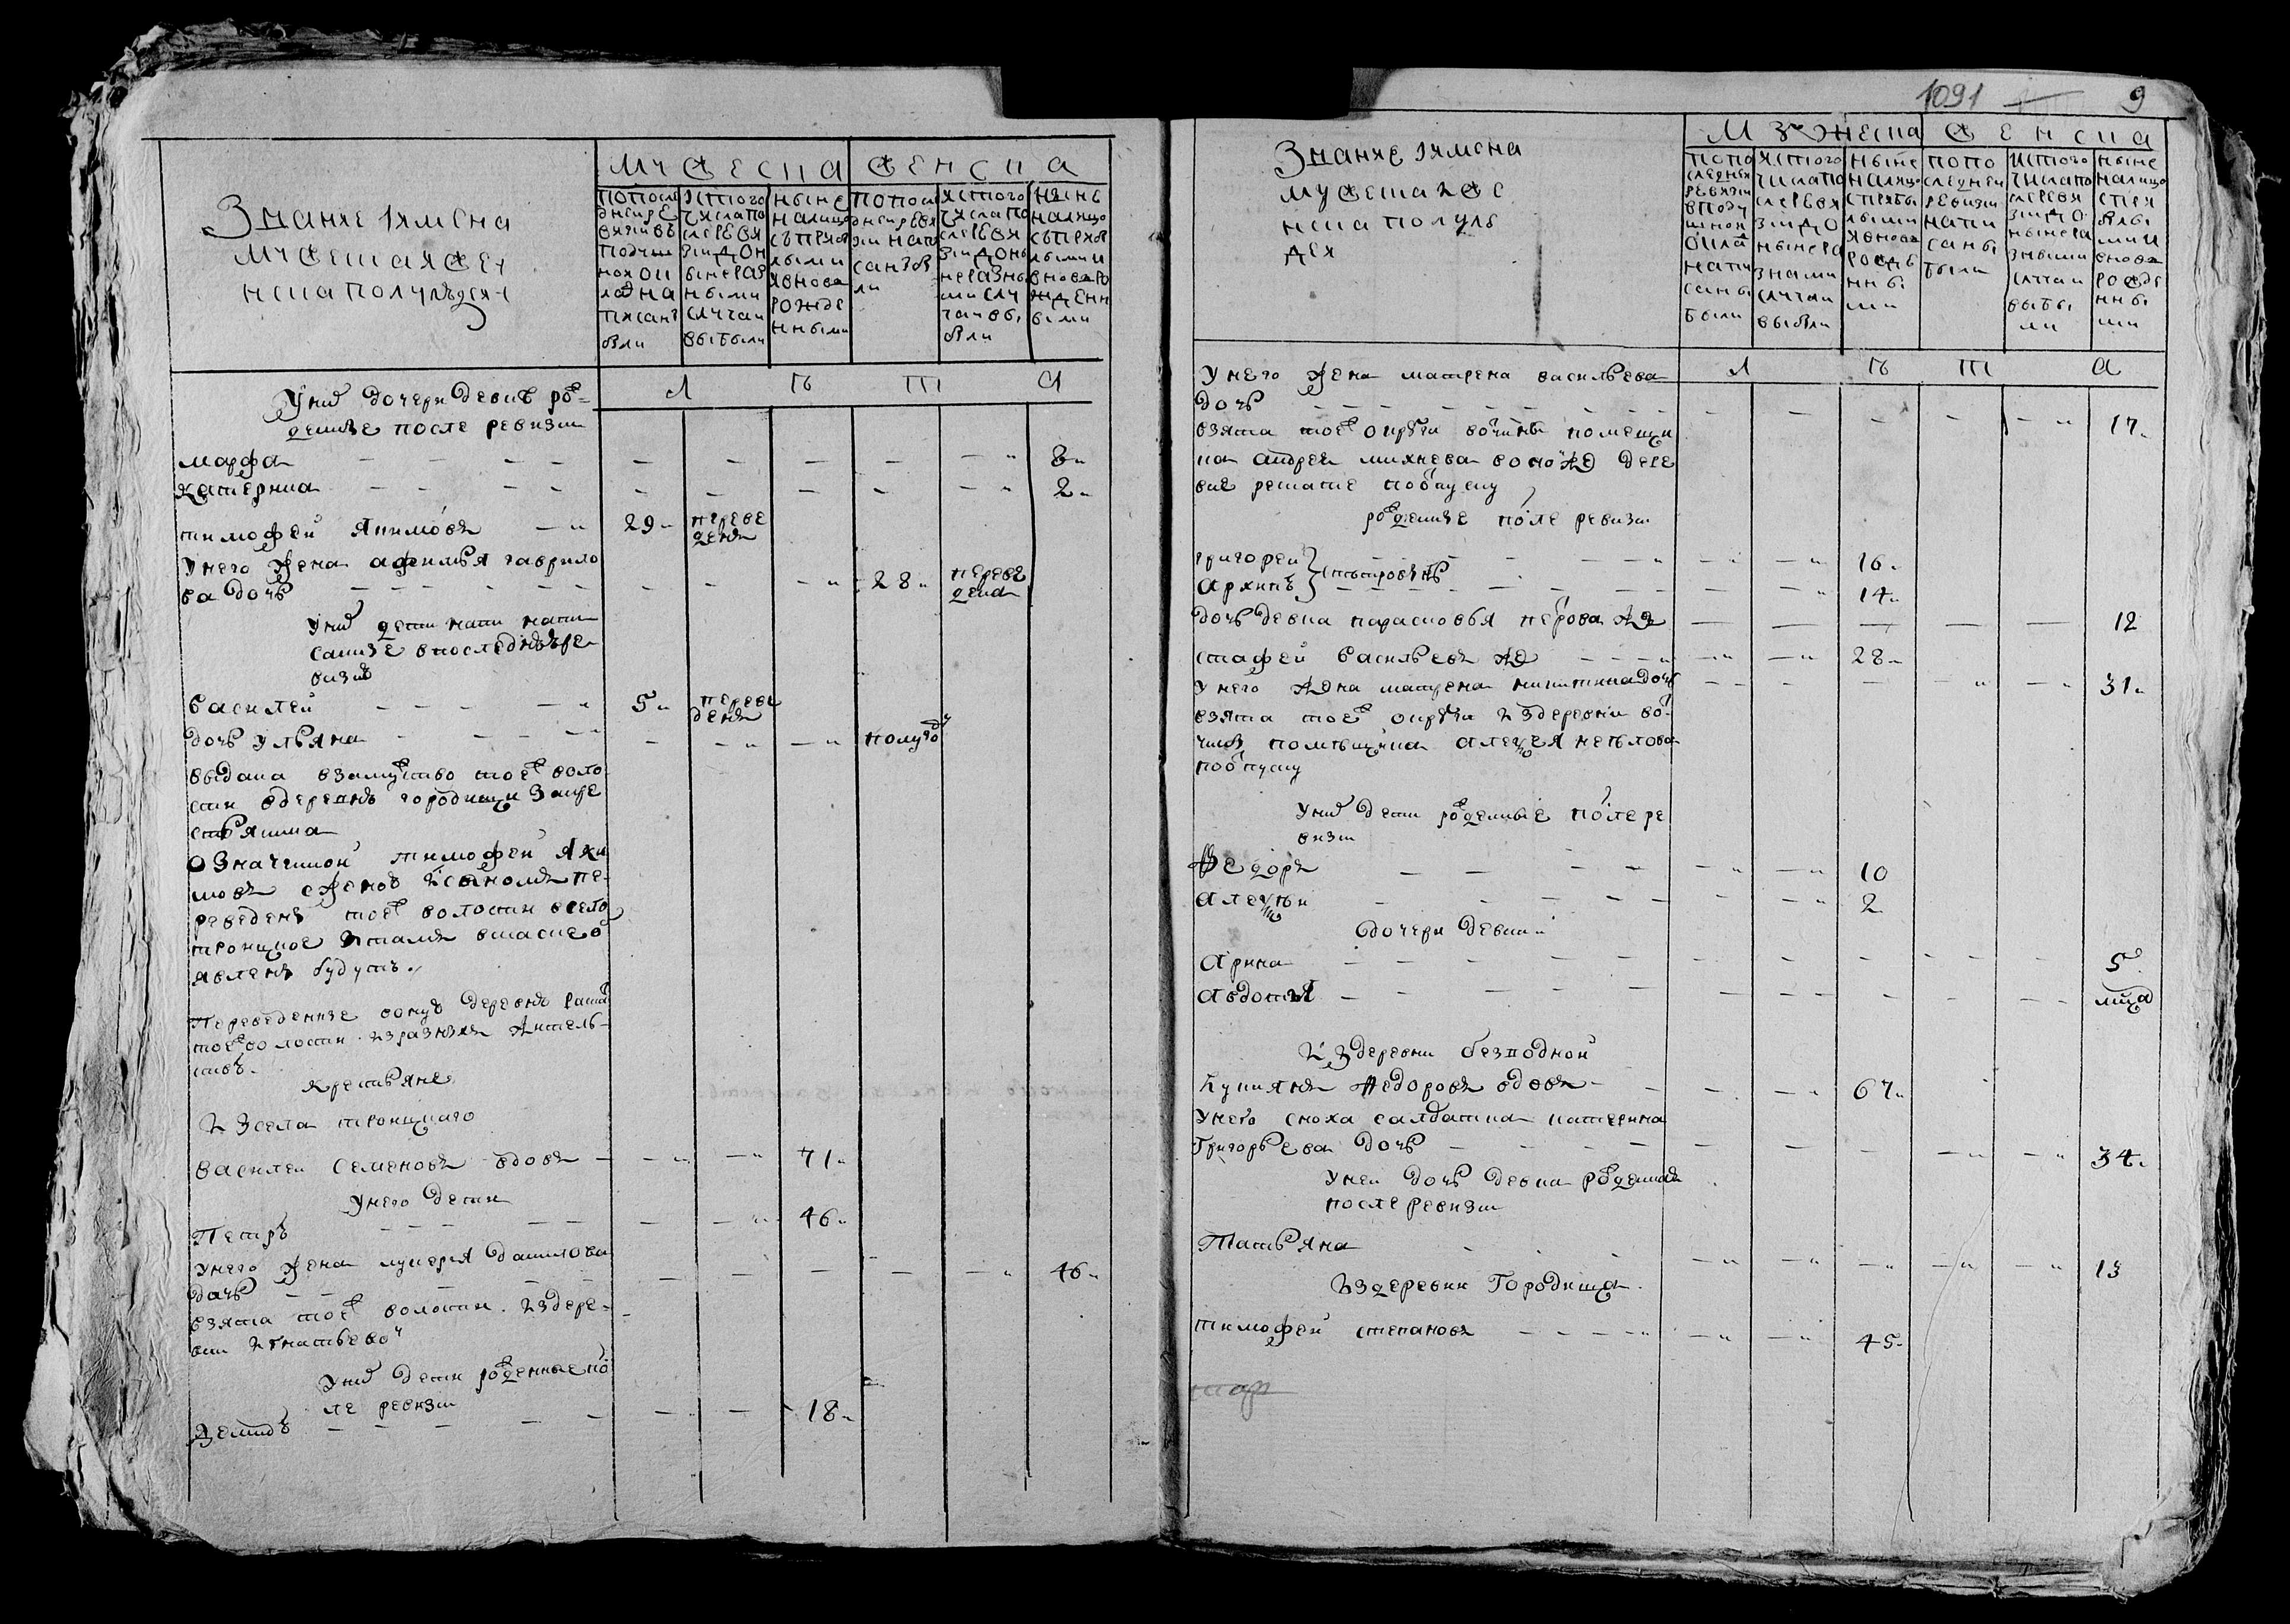 Звание и имена
мужеска и жен
ска полу людей
мужеска женска
по после
дней ре
визии въ
подуш
ной окладъ
написаны
были
ис того
числа по
сле реви
зии до н
ыне раз
ными
случаи
выбыли
ныне
на лицо
съ прибы
лыми
и вновь
рожде
нными
по после
дней реви
зии напи
саны бы
ли
ис того
числа по
сле реви
зии до ны
не разны
ми слу
чаи вы
были
ныне
на лицо
съ прибы
лыми и
вновь ро
жденн
ыми
Л Ѣ Т А
У них дочери девки ро
жденные после ревизии
Марфа 8
Катерина 2
Тимофей Якимовъ 29 переве
денъ
У него жена афимья гаврило
ва дочь 28 переве
дена
У них дети напи
санные в последней ре
визии
Василей 5 переве
денъ
дочь Ульяна полугоду
выдана взамужство той воло
сти в деревню городищи за кре
стьянина
означенной тимофей Яки
мовъ с женою и сыномъ пе
реведенъ той волости в село
троицкое и тамъ в сказке о
явленъ будутъ
Переведенные в оную деревню
той волости из разных жительствъ
крестьяне
Из села троицкаго
Василей Семеновъ вдовъ 71
У него дети
Петръ 46
У него жена лукерья данилова
дочь 46
взята той волости из дере
вни Игнатьевой
У них дети рожденные по
сле ревизии
Демидъ 18
1091 9
Звание и имена
мужеска и же
нска полу лю
дей
мужеска женска
по по
следней
ревизии
в поду
шной
окла
напи
саны
были
ис того
числа по
сле реви
зии до
ныне ра
зными
случаи
выбыли
ныне
на лицо
с прибы
лыми
и вновь
рожде
нны
ми
по по
следней
ревизии
напи
саны
были
ис того
числа по
сле реви
зии до
ныне ра
зными
случаи
выбы
ли
ныне
на лицо
с при
былы
ми и
вновь
рожде
нны
ми
Л Ѣ Т А
У него жена матрена васильева
дочь 17
взята той округи вотчины помещи
ка андрея михнева
по отпуску
рожденные после ревизии
григорей 16
Архипъ 14
дочь девка парасковья петрова 12
Васильевъ 28
У него жена матрена никитина дочь 31
взята той округи из деревни во
тчины помещика алексея неплюева
по отпуску
У них дети рожденные после ре
визии
Федоръ 10
Алексей 2
дочери девки
Арина 5
Авдотья
Из деревни безводной
Куприянъ Федоровъ вдовъ 67
У него сноха салдатка катерина
Григорьева дочь 34
У ней дочь девка рожденная
после ревизии
Татьяна 13
Из деревни Городища
тимофей степановъ 45